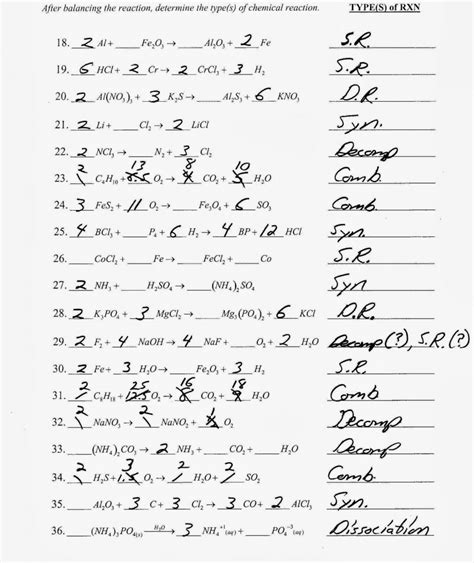 After balancing the reaction, determine the type(s) of chemical reaction. TYPE(S) of RXN
18. 2 Al + ___ Fe₂O₃ → ___ Al₂O₃ + 2 Fe S.R.
19. 6 HCl + 2 Cr → 2 CrCl₃ + 3 H₂ S.R.
20. 2 Al(NO₃)₃ + 3 K₂S → ___ Al₂S₃ + 6 KNO₃ D.R.
21. 2 Li + ___ Cl₂ → 2 LiCl Syn.
22. 2 NCl₃ → ___ N₂ + 3 Cl₂ Decomp
23. 2 C₄H₁₀ + 13 6.5 O₂ → 8 4 CO₂ + 10 5 H₂O Comb.
24. 3 FeS₂ + 11 O₂ → ___ Fe₃O₄ + 6 SO₃ Comb.
25. 4 BCl₃ + ___ P₄ + 6 H₂ → 4 BP + 12 HCl Syn.
26. ___ CoCl₂ + ___ Fe → ___ FeCl₂ + ___ Co S.R.
27. 2 NH₃ + ___ H₂SO₄ → ___ (NH₄)₂SO₄ Syn
28. 2 K₃PO₄ + 3 MgCl₂ → ___ Mg₃(PO₄)₂ + 6 KCl D.R.
29. 2 F₂ + 4 NaOH → 4 NaF + ___ O₂ + 2 H₂O Decomp(?), S.R.(?)
30. 2 Fe + 3 H₂O → ___ Fe₂O₃ + 3 H₂ S.R.
31. 2 C₈H₁₈ + 25 12.5 O₂ → 16 8 CO₂ + 18 9 H₂O Comb
32. 2 NaNO₃ → 2 NaNO₂ + O₂ Decomp
33. ___ (NH₄)₂CO₃ → 2 NH₃ + ___ CO₂ + ___ H₂O Decomp
34. 2 H₂S + 3 1.5 O₂ → 2 H₂O + 2 SO₂ Comb.
35. ___ Al₂O₃ + 3 C + 3 Cl₂ → 3 CO + 2 AlCl₃ Syn.
36. ___ (NH₄)₃PO₄(s) —H₂O→ 3 NH₄⁺¹(aq) + ___ PO₄⁻³(aq) Dissociation